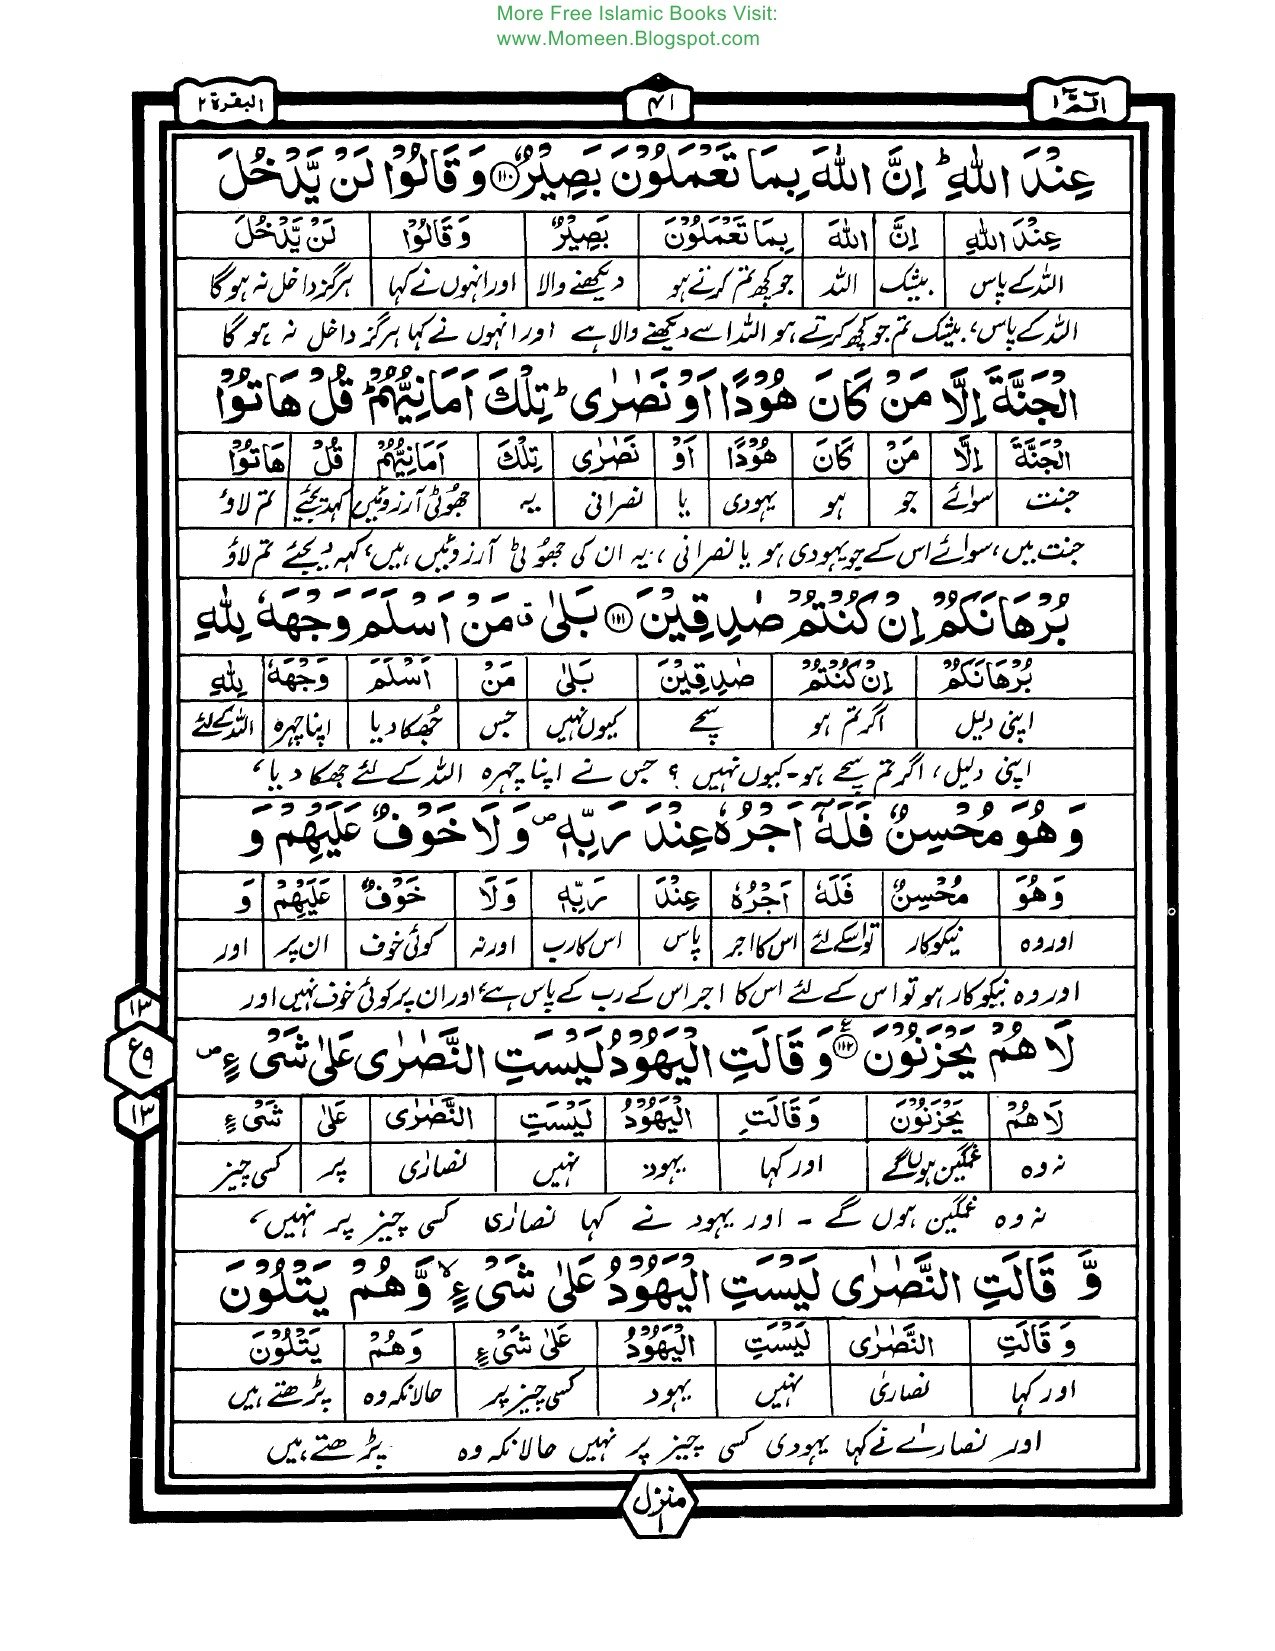 More Free Islamic Books Visit:
www.Momeen.Blogspot.com
الٓمّٓ ۱ ۴۱ البقرة ۲
عِنْدَ اللّٰهِ ؕ اِنَّ اللّٰهَ بِمَا تَعْمَلُوْنَ بَصِيْرٌ ۝۱۱۰ وَ قَالُوْا لَنْ يَّدْخُلَ
عِنْدَ اللّٰهِ اِنَّ اللّٰهَ بِمَا تَعْمَلُوْنَ بَصِيْرٌ وَ قَالُوْا لَنْ يَّدْخُلَ
اللہ کے پاس بیشک اللہ جو کچھ تم کرتے ہو دیکھنے والا اور انہوں نے کہا ہرگز داخل نہ ہوگا
اللہ کے پاس، بیشک تم جو کچھ کرتے ہو اللہ اسے دیکھنے والا ہے اور انہوں نے کہا ہرگز داخل نہ ہو گا
الْجَنَّةَ اِلَّا مَنْ كَانَ هُوْدًا اَوْ نَصٰرٰى ؕ تِلْكَ اَمَانِيُّهُمْ ؕ قُلْ هَاتُوْا
الْجَنَّةَ اِلَّا مَنْ كَانَ هُوْدًا اَوْ نَصٰرٰى تِلْكَ اَمَانِيُّهُمْ قُلْ هَاتُوْا
جنت سوائے جو ہو یہودی یا نصرانی یہ جھوٹی آرزوئیں کہدیجئے تم لاؤ
جنت میں، سوائے اس کے جو یہودی ہو یا نصرانی، یہ ان کی جھوٹی آرزوئیں ہیں، کہہ دیجئے تم لاؤ
بُرْهَانَكُمْ اِنْ كُنْتُمْ صٰدِقِيْنَ ۝۱۱۱ بَلٰى ۗ مَنْ اَسْلَمَ وَجْهَهٗ لِلّٰهِ
بُرْهَانَكُمْ اِنْ كُنْتُمْ صٰدِقِيْنَ بَلٰى مَنْ اَسْلَمَ وَجْهَهٗ لِلّٰهِ
اپنی دلیل اگر تم ہو سچے کیوں نہیں جس جھکا دیا اپنا چہرہ اللہ کے لئے
اپنی دلیل، اگر تم سچے ہو۔ کیوں نہیں ؟ جس نے اپنا چہرہ اللہ کے لئے جھکا دیا،
وَ هُوَ مُحْسِنٌ فَلَهٗٓ اَجْرُهٗ عِنْدَ رَبِّهٖ ۪ وَ لَا خَوْفٌ عَلَيْهِمْ وَ
وَهُوَ مُحْسِنٌ فَلَهٗ اَجْرُهٗ عِنْدَ رَبِّهٖ وَلَا خَوْفٌ عَلَيْهِمْ وَ
اور وہ نیکوکار تو اسکے لئے اس کا اجر پاس اس کا رب اور نہ کوئی خوف ان پر اور
اور وہ نیکوکار ہو تو اس کے لئے اس کا اجر اس کے رب کے پاس ہے، اور ان پر کوئی خوف نہیں اور
۱۳
ع ۹
۱۳
لَا هُمْ يَحْزَنُوْنَ ۝۱۱۲ وَ قَالَتِ الْيَهُوْدُ لَيْسَتِ النَّصٰرٰى عَلٰى شَيْءٍ ۪
لَا هُمْ يَحْزَنُوْنَ وَ قَالَتِ الْيَهُوْدُ لَيْسَتِ النَّصٰرٰى عَلٰى شَيْءٍ
نہ وہ غمگین ہوں گے اور کہا یہود نہیں نصارٰی پر کسی چیز
نہ وہ غمگین ہوں گے ۔ اور یہود نے کہا نصارٰی کسی چیز پر نہیں،
وَّ قَالَتِ النَّصٰرٰى لَيْسَتِ الْيَهُوْدُ عَلٰى شَيْءٍ ۙ وَّ هُمْ يَتْلُوْنَ
وَ قَالَتِ النَّصٰرٰى لَيْسَتِ الْيَهُوْدُ عَلٰى شَيْءٍ وَهُمْ يَتْلُوْنَ
اور کہا نصارٰی نہیں یہود کسی چیز پر حالانکہ وہ پڑھتے ہیں
اور نصارٰے نے کہا یہودی کسی چیز پر نہیں حالانکہ وہ پڑھتے ہیں
منزل ۱